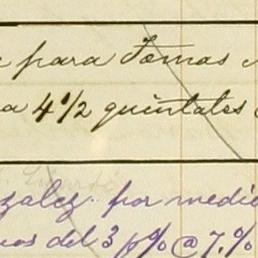 para Tomas
a 4 1/2 quintales
zalez. por medio
os del 3 p% @ 7.%